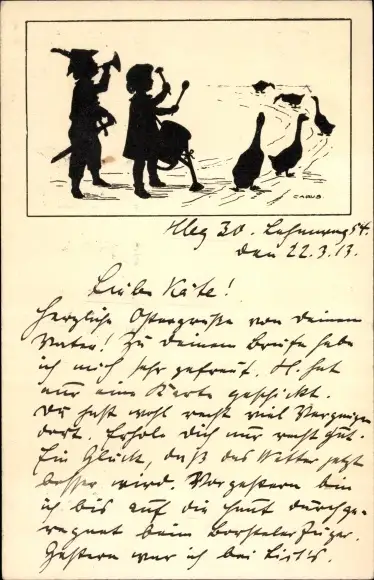 CARUS.
Hbg 30. Lehmweg 54.
den 22.3.13.
Liebe Käte!
Herzliche Ostergrüße von deinem
Vater! Zu deinem Briefe habe
ich mich sehr gefreut. H. hat
nur eine Karte geschickt.
Du hast wohl recht viel Vergnügen
dort. Erhole dich nur recht gut.
Ein Glück, daß das Wetter jetzt
besser wird. Vorgestern bin
ich bis auf die Haut durchge-
regnet beim Borsteler Jäger.
Gestern war ich bei